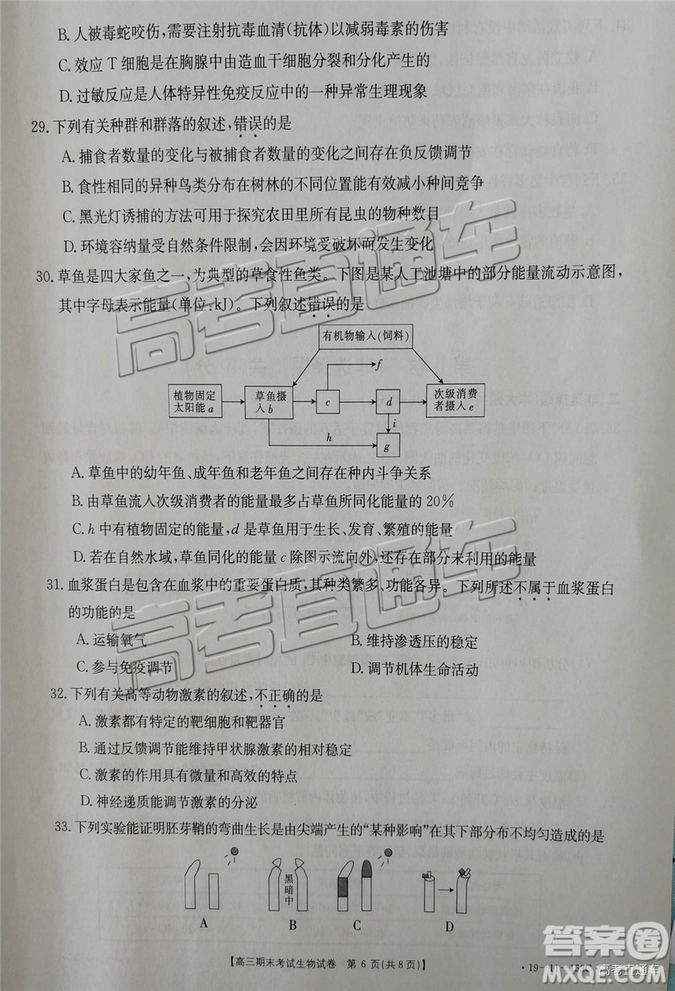 B. 人被毒蛇咬伤,需要注射抗毒血清(抗体)以减弱毒素的伤害
C. 效应 T 细胞是在胸腺中由造血干细胞分裂和分化产生的
D. 过敏反应是人体特异性免疫反应的一种正常生理现象
29. 下列有关种群和群落的叙述,错误的是
A. 捕食者数量的变化与被捕食者数量的变化之间存在负反馈调节
B. 食性相同的异种鸟类分布在树林的不同位置能有效减小种间竞争
C. 黑光灯诱捕的方法可用于探究农田里所有昆虫的物种数目
D. 环境容纳量受自然条件限制,会因环境受破坏而发生变化
30. 草鱼是四大家鱼之一,为典型的草食性鱼类。下图是某人工池塘中的部分能量流动示意图,
其中字母表示能量(单位:kJ)。下列叙述错误的是
有机物输入(饲料)
f
植物固定
太阳能 a
草鱼摄
入 b
c
d
次级消费
者摄入 e
h
i
g
A. 草鱼中的幼年鱼、成年鱼和老年鱼之间存在种内斗争关系
B. 由草鱼流入次级消费者的能量最多占草鱼所同化能量的 20%
C. h 中有植物固定的能量,d 是草鱼用于生长、发育、繁殖的能量
D. 若在自然水域,草鱼同化的能量 c 除图示流向外,还存在部分未利用的能量
31. 血浆蛋白是包含在血浆中的重要蛋白质,其种类繁多、功能各异。下列所述不属于血浆蛋白
的功能的是
A. 运输氧气
B. 维持渗透压的稳定
C. 参与免疫调节
D. 调节机体生命活动
32. 下列有关高等动物激素的叙述,不正确的是
A. 激素都有特定的靶细胞和靶器官
B. 通过反馈调节能维持甲状腺激素的稳定
C. 激素的作用具有微量和高效的特点
D. 神经递质能调节激素的分泌
33. 下列实验能证明胚芽鞘的弯曲生长是由尖端产生的“某种影响”在其下部分布不均匀造成的是
黑暗中
A
B
C
D
【高三期末考试生物试卷 第 6 页(共 8 页)】
高考直通车
高考直通车
答案圈
MXQE.COM
高考直通车